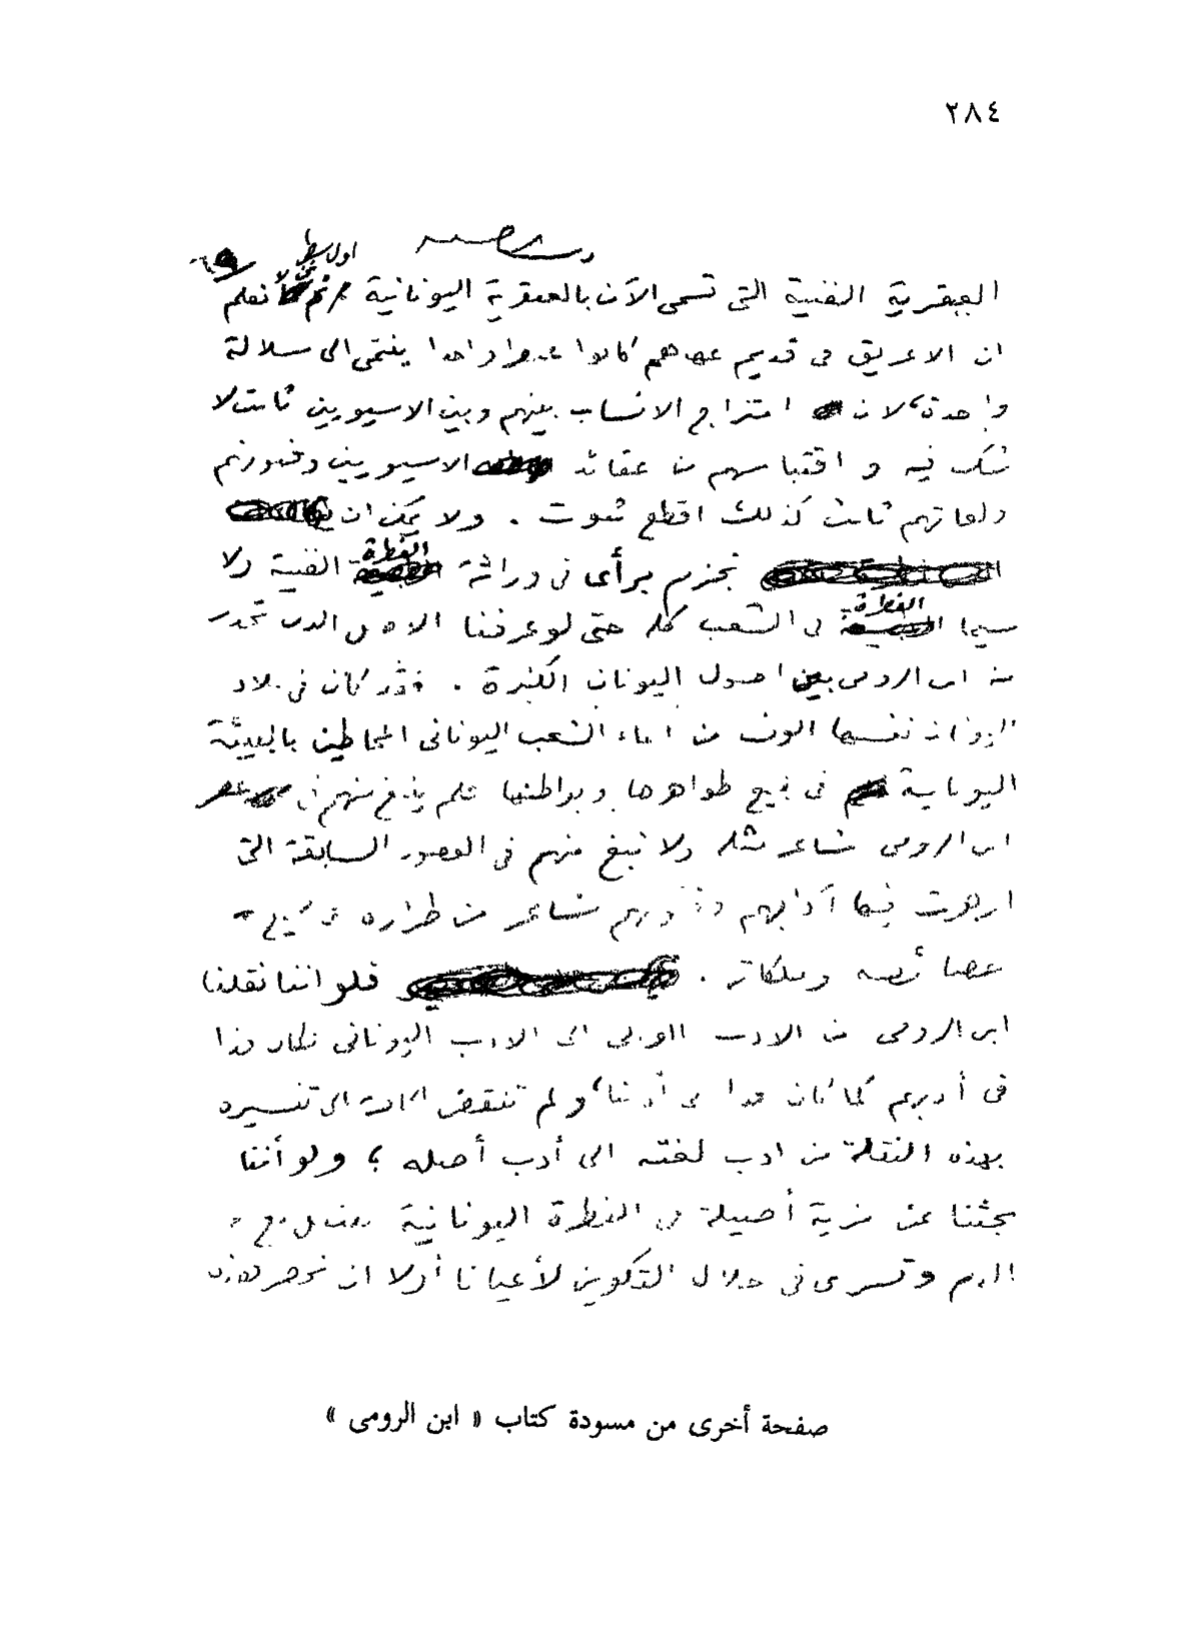 ٢٨٤
اول سطر
العبقرية الفنية التى تسمى الآن بالعبقرية اليونانية نعلم
ان الاغريق فى قديم عهدهم كانوا عنصرا واحدا ينتمى الى سلالة
واحدة، لان امتزاج الانساب بينهم وبين الاسيويين ثابت لا
شك فيه و اقتباسهم من عقائد الاسيويين وفنونهم
ولغاتهم ثابت كذلك اقطع ثبوت . ولا يمكن ان
نجزم برأى فى وراثة الفطرة الفنية ولا
سيما الفطرة فى الشعب كله حتى لو عرفنا الاصل الذى تحدر
منه ابن الرومى بين اصول اليونان الكثيرة . فقد كان فى بلاد
اليونان نفسها الوف من ابناء الشعب اليونانى المحاطين بالبيئة
اليونانية فى جميع ظواهرها وبواطنها فلم ينبغ منهم فى عصر
ابن الرومى شاعر مثله ولا نبغ منهم فى العصور السابقة التى
ازدهرت فيها آدابهم شاعر من طرازه فى جميع
خصائصه وملكاته . فلو اننا نقلنا
ابن الرومى من الادب العربى الى الادب اليونانى لكان فذا
فى أدبهم كما كان فذا فى أدبنا، ولم تنقض الحاجة الى تفسيره
بهذه النقلة من ادب لغته الى أدب أصله ؛ ولو أننا
بحثنا عن مزية أصيلة فى الفطرة اليونانية
الدم وتسرى فى خلال التكوين لأعيانا أولا ان نحصر هذه
صفحة أخرى من مسودة كتاب « ابن الرومى »